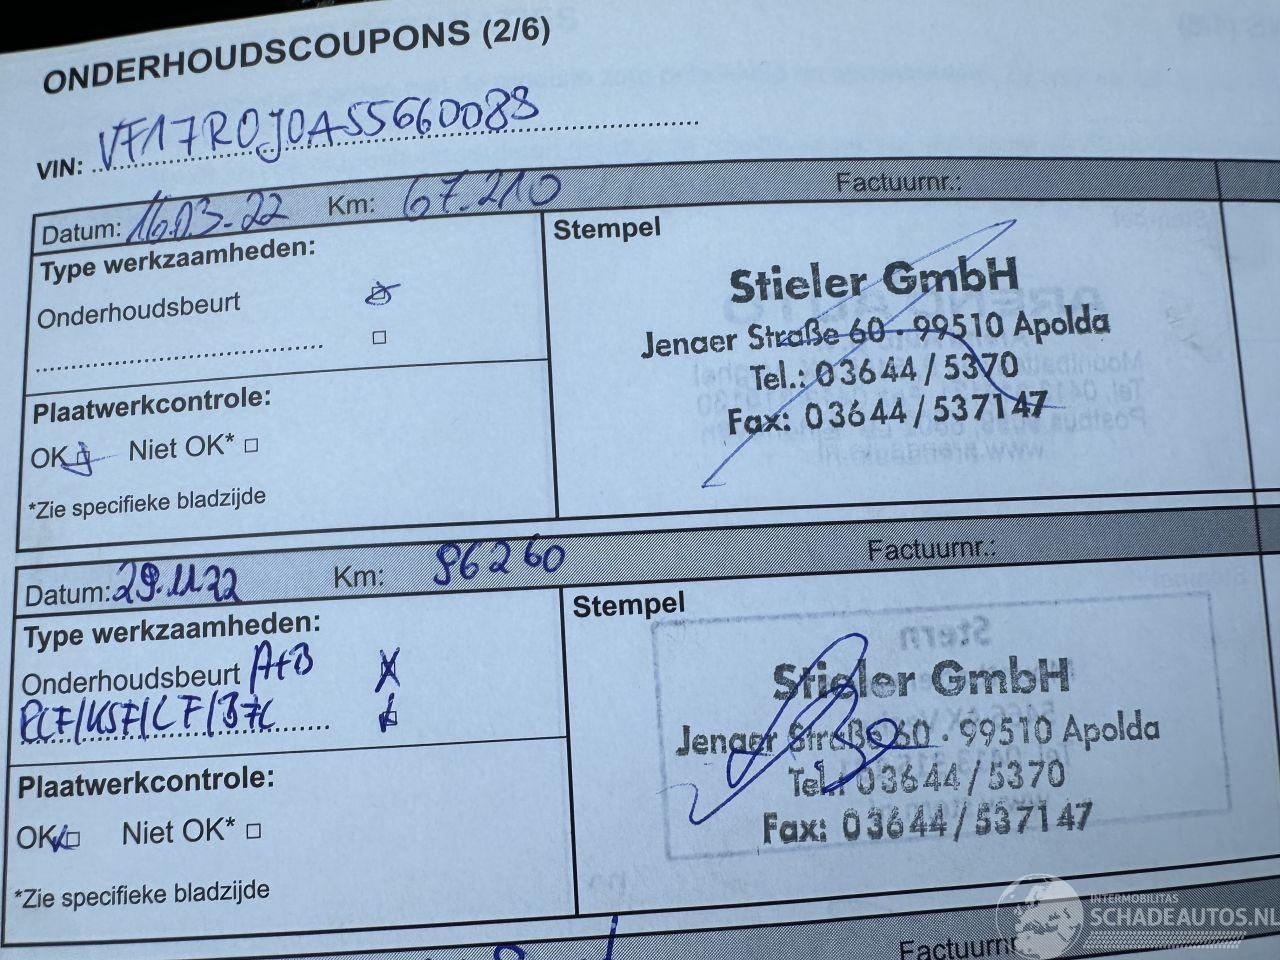 ONDERHOUDSCOUPONS (2/6)
VIN: VF17R0J0A55660088
Datum: 16.03.22 Km: 67.210 Factuurnr.:
Type werkzaamheden:
Onderhoudsbeurt
Stempel
Stieler GmbH
Jenaer Straße 60 · 99510 Apolda
Tel.: 03644/5370
Fax: 03644/537147
Plaatwerkcontrole:
OK Niet OK*
*Zie specifieke bladzijde
Datum: 29.11.22 Km: 86260 Factuurnr.:
Type werkzaamheden:
Onderhoudsbeurt A+B
Stempel
Stieler GmbH
Jenaer Straße 60 · 99510 Apolda
Tel.: 03644/5370
Fax: 03644/537147
Plaatwerkcontrole:
OK Niet OK*
*Zie specifieke bladzijde
Factuurnr.
INTERMOBILITAS
SCHADEAUTOS.NL